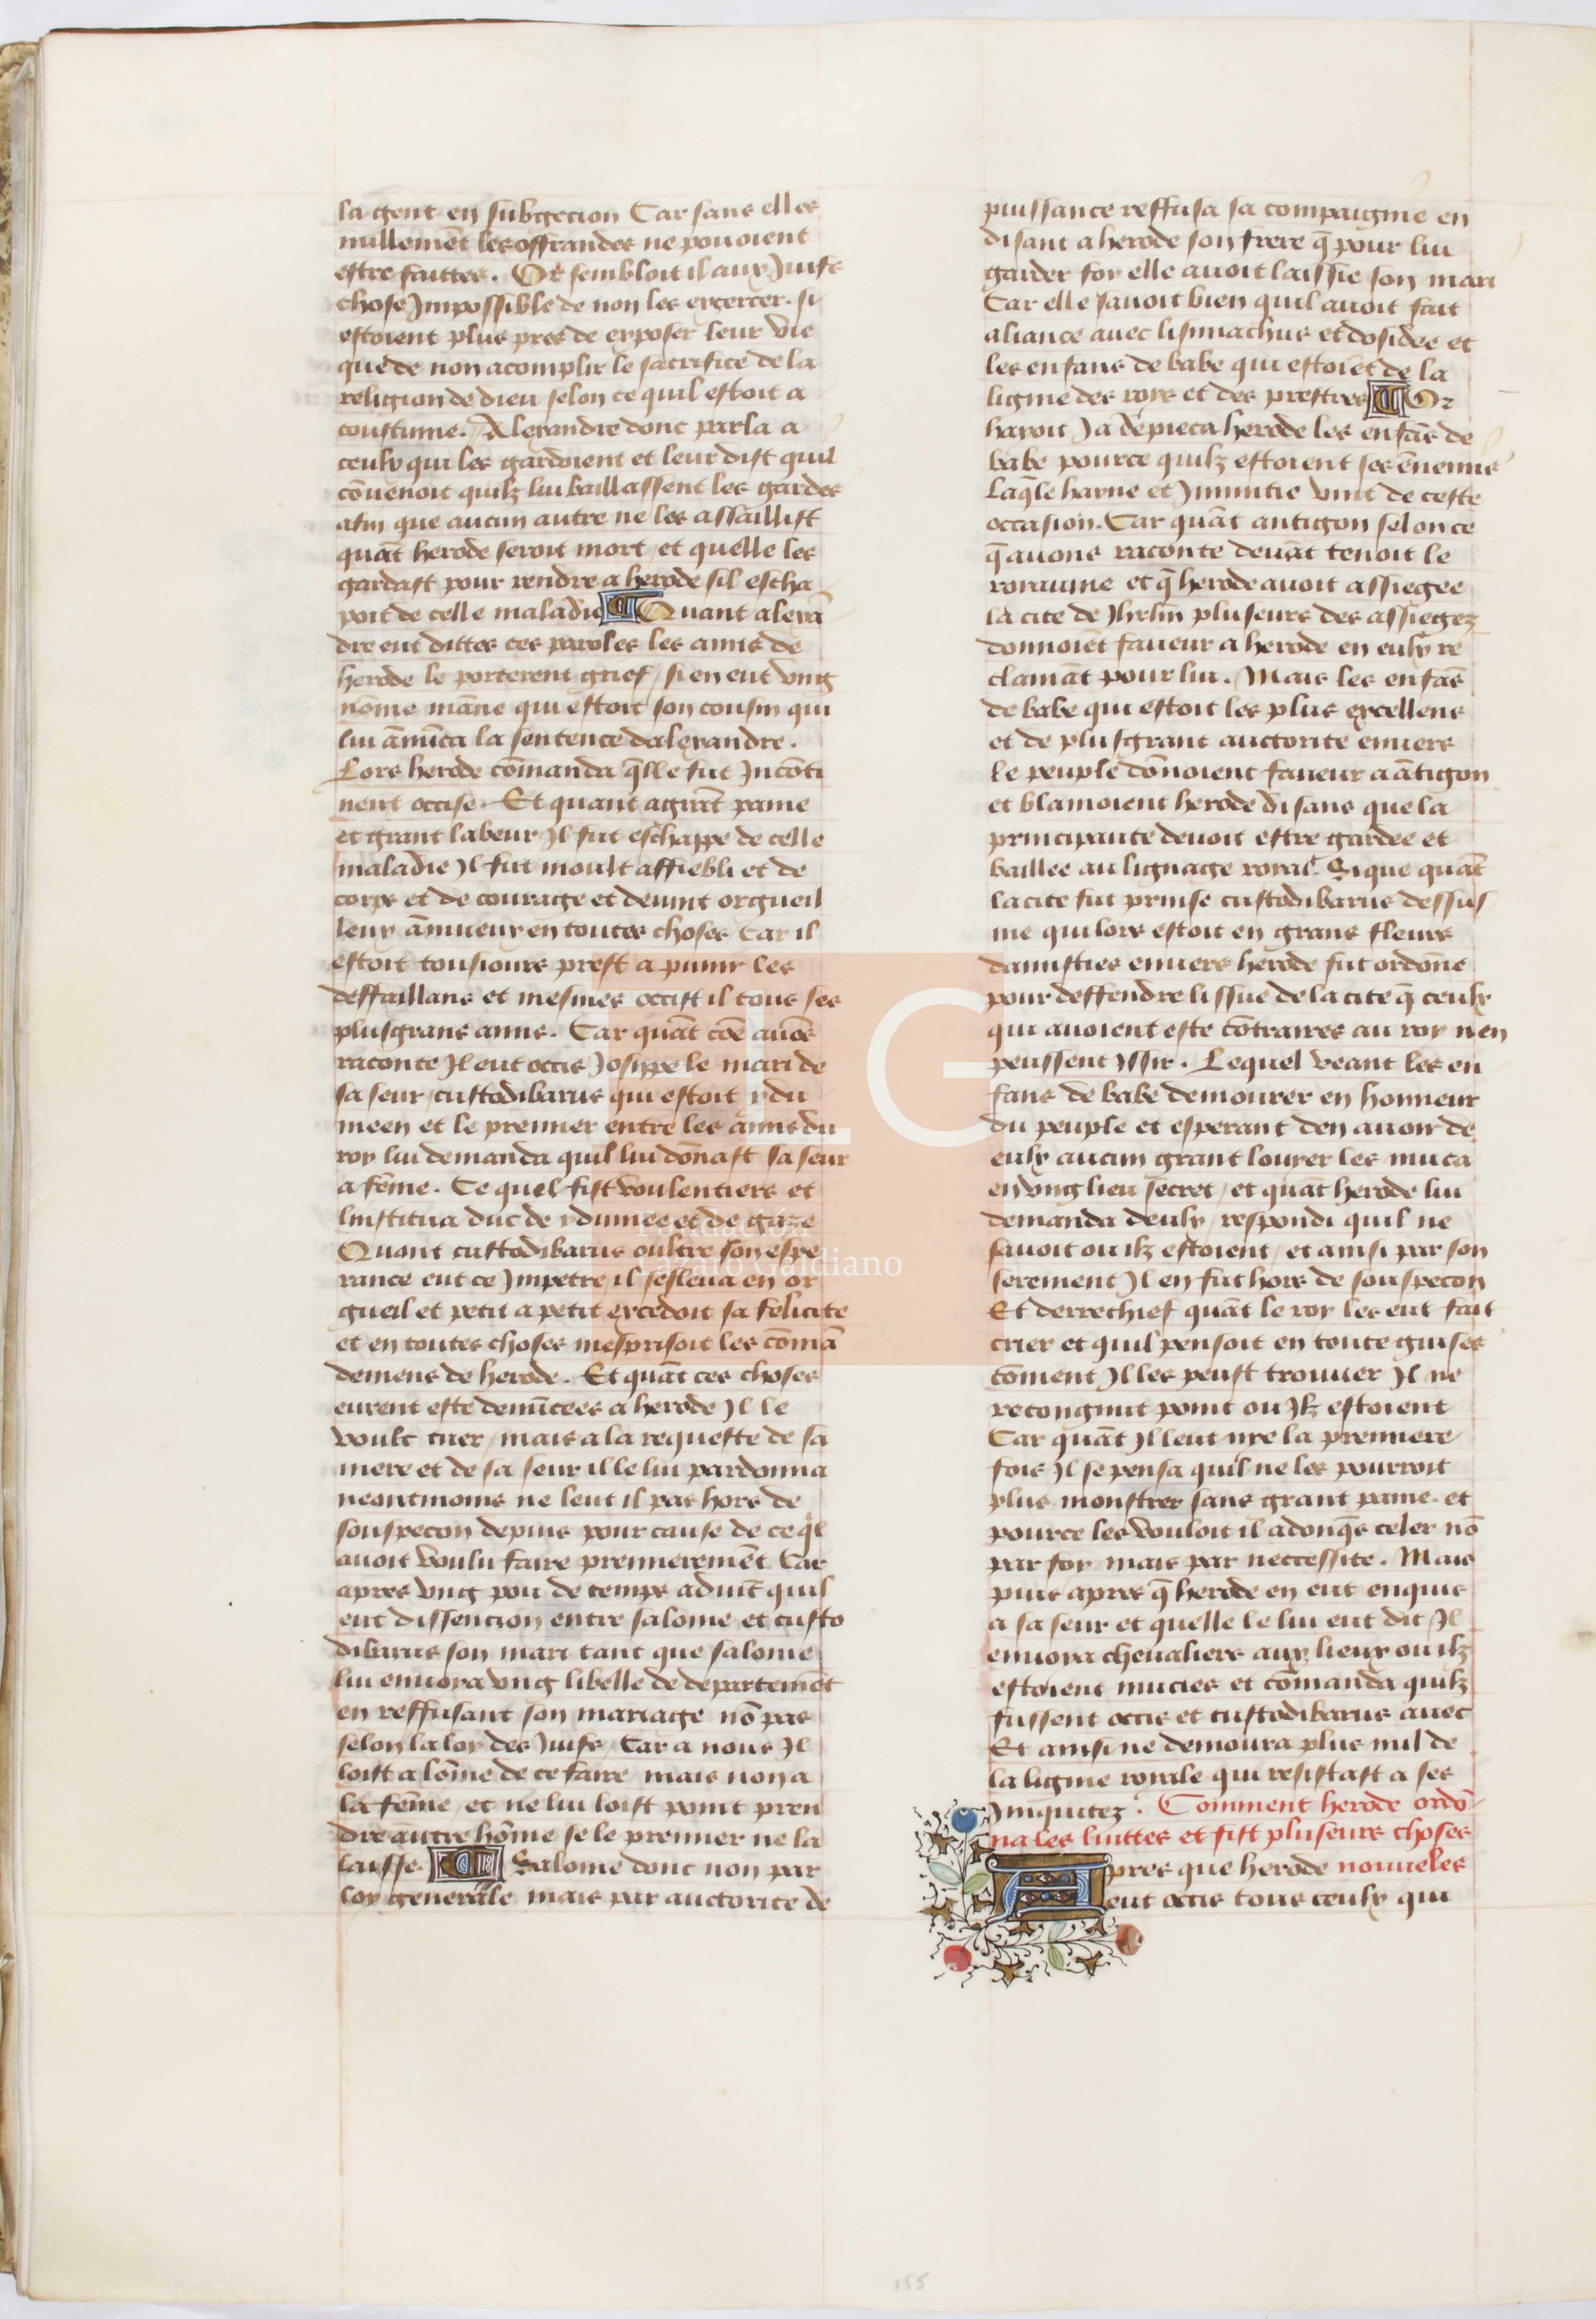 la gent en subgection Car sans elles
nullemēt les offrandes ne pouoient
estre faittes. Or sembloit il aux Juifs
chose Jmpossible de non les excercer. si
estoient plus pres de exposer leur vie
que de non acomplir le sacrifice de la
religion de dieu selon ce quil estoit a
coustume. Alexandre donc parla a
ceulx qui les gardoient et leur dist quil
cōuenoit quilz lui baillassent les gardes
afin que aucun autre ne les assaillist
quāt herode seroit mort et quelle les
gardast pour rendre a herode sil escha
poit de celle maladie Quant alexā
dre eut dittes ces paroles les amis de
herode le porterent grief / si en eut vng
nōme māne qui estoit son cousin qui
lui ānūca la sentence dalexandre.
Lors herode cōmanda q̄lle fut Jncōti
nent occise. Et quant a grāt paine
et grant labeur Jl fut eschappe de celle
maladie Jl fut moult affiebli et de
corps et de courage et deuint orgueil
leux ānuieux en toutes choses Car il
estoit tousiours prest a punir les
deffaillans et mesmes occist il tous ses
plusgrans amis. Car quāt cōe auōs
raconte Jl eut occis Josippe le mari de
sa seur / custodibarus qui estoit ydu
meen et le premier entre les amis du
roy lui demanda quil lui dōnast sa seur
a fēme. Ce quel fist voulentiers et
linstitua duc de ydumee et de gaze
Quant custodibarus oultre son espe
rance eut ce Jmpetre / il sesleua en or
gueil et petit a petit excedoit sa felicite
et en toutes choses mesprisoit les cōmā
demens de herode. Et quāt ces choses
eurent este denūcees a herode Jl le
voult tuer / mais a la requeste de sa
mere et de sa seur il le lui pardonna
neantmoins ne leut il pas hors de
souspecon depuis pour cause de ce q̄l
auoit voulu faire premieremēt. Car
apres vng pou de temps aduīt quil
eut dissencion entre salome et custo
dibarus son mari tant que salome
lui enuoya vng libelle de departemēt
en reffusant son mariage nō pas
selon la loy des Juifs / Car a nous Jl
loist a lōme de ce faire / mais non a
la fēme / et ne lui loist point pren
dre autre hōme se le premier ne la
laisse. Salome donc non par
loy generale mais par auctorite de
puissance reffusa sa compaignie en
disant a herode son frere q̄ pour lui
garder foy elle auoit laissie son mari
Car elle sauoit bien quil auoit fait
aliance auec lisimachus et dosidee et
les enfans de babe qui estoiēt de la
lignie des roys et des prestres Or
hayoit Ja depieca herode les enfās de
babe pource quilz estoient ses ēnemis
Laq̄le hayne et Jnimitie vint de ceste
occasion. Car quāt antigon selon ce
q̄ auons raconte deuāt tenoit le
royaume et q̄ herode auoit assiegee
la cite de Jhrl̄m pluseurs des assiegez
donnoiēt faueur a herode en eulx re
clamāt pour lui. Mais les enfās
de babe qui estoit les plus excellens
et de plusgrant auctorite enuers
le peuple dōnoient faueur a ātigon
et blamoient herode disans que la
principaute deuoit estre gardee et
baillee au lignage royal. Si que quāt
la cite fut prinse custodibarus dessus
me qui lors estoit en grans fleurs
damisties enuers herode fut ordōne
pour deffendre lissue de la cite q̄ ceulx
qui auoient este cōtraires au roy nen
peussent Jssir. Lequel veant les en
fans de babe demourer en honneur
du peuple et esperant den auoir de
eulx aucun grant louyer les muca
en vng lieu secret / et quāt herode lui
demanda deulx / respondi quil ne
sauoit ou ilz estoient / et ainsi par son
serement Jl en fut hors de souspecon
Et derrechief quāt le roy les eut fait
crier et quil pensoit en toute guises
cōment Jl les peust trouuer Jl ne
recongnut point ou Jlz estoient
Car quāt Jl leut nye la premiere
fois Jl se pensa quil ne les pourroit
plus monstrer sans grant paine. et
pource les vouloit il adonq̄s celer nō
par foy mais par neccessite. Mais
puis apres q̄ herode en eut enquis
a sa seur et quelle le lui eut dit Jl
enuoya cheualiers aux lieux ou ilz
estoient mucies et cōmanda quilz
fussent occis et custodibarus auec
Et ainsi ne demoura plus nul de
la lignie royale qui resistast a ses
Jniquitez. Comment herode ordō
na les luittes et fist pluseurs choses
Apres que herode nouueles
eut occis tous ceulx qui
FLG
Fundación
Lázaro Galdiano
155